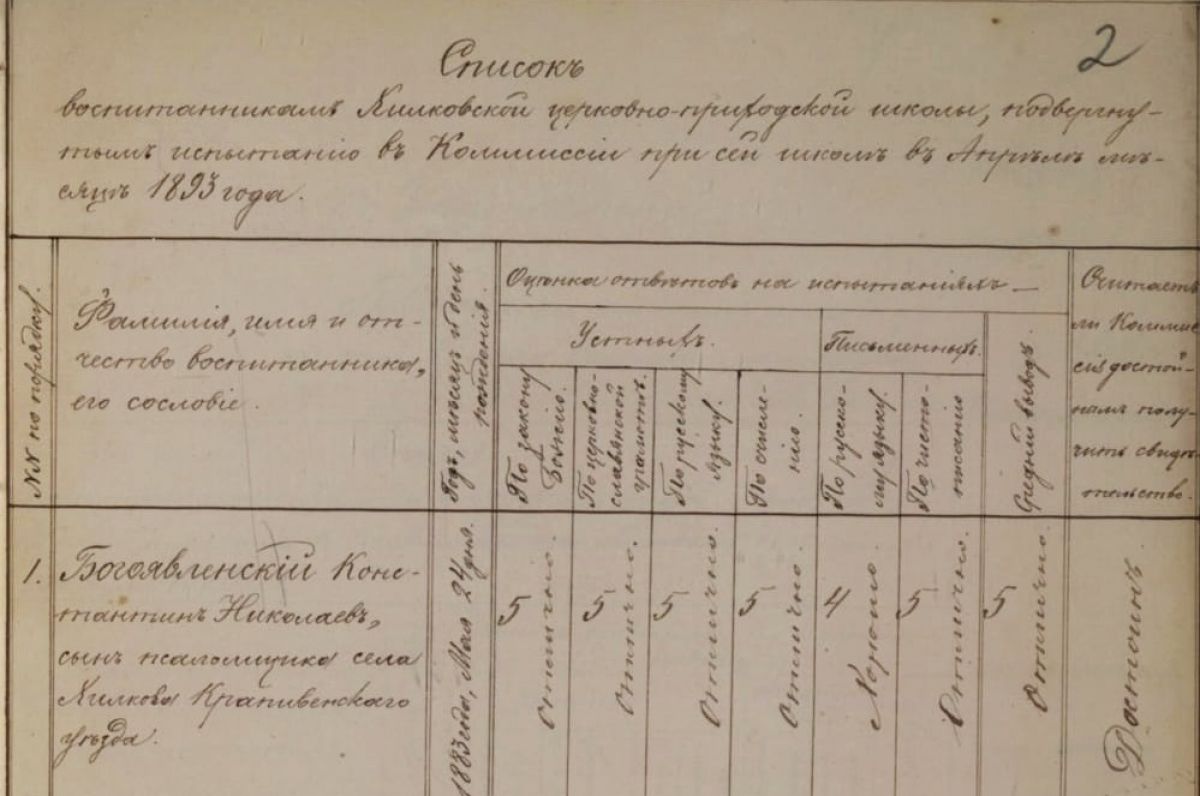 2
Списокъ
воспитанникамъ Хилковской церковно-приходской школы, подвергну-
тымъ испытанію въ Коммиссіи при сей школѣ въ Апрѣлѣ мѣ-
сяцѣ 1893 года.
NN по порядку.
Фамилія, имя и от-
чество воспитанника,
его сословіе.
Годъ, мѣсяцъ и день
рожденія.
Оцѣнка отвѣтовъ на испытаніяхъ
Устныхъ.
Письменныхъ.
По закону
Божію.
По церковно-
славянской
грамотѣ.
По русскому
языку.
По счисле-
нію.
По русско-
му языку.
По чисто-
писанію
Средній выводъ.
Считаетъ
ли Коммис
сія достой-
нымъ полу-
чить свидѣ-
тельство.
1.
Богоявленскій Конс-
тантинъ Николаевъ,
сынъ псаломщика села
Хилкова Крапивенскаго
уѣзда.
1883 года, Мая 24 дня.
5 отлично.
5 отлично.
5 Отлично.
5 Отлично.
4 Хорошо
5 Отлично.
5 Отлично.
Достоинъ